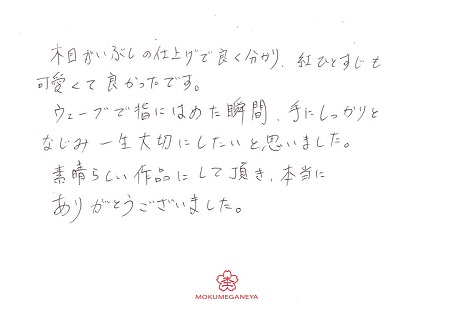 木目がいぶしの仕上げで良く分かり、紅ひとすじも
可愛くて良かったです。
ウェーブで指にはめた瞬間、手にしっかりと
なじみ一生大切にしたいと思いました。
素晴らしい作品にして頂き、本当に
ありがとうございました。
MOKUMEGANEYA